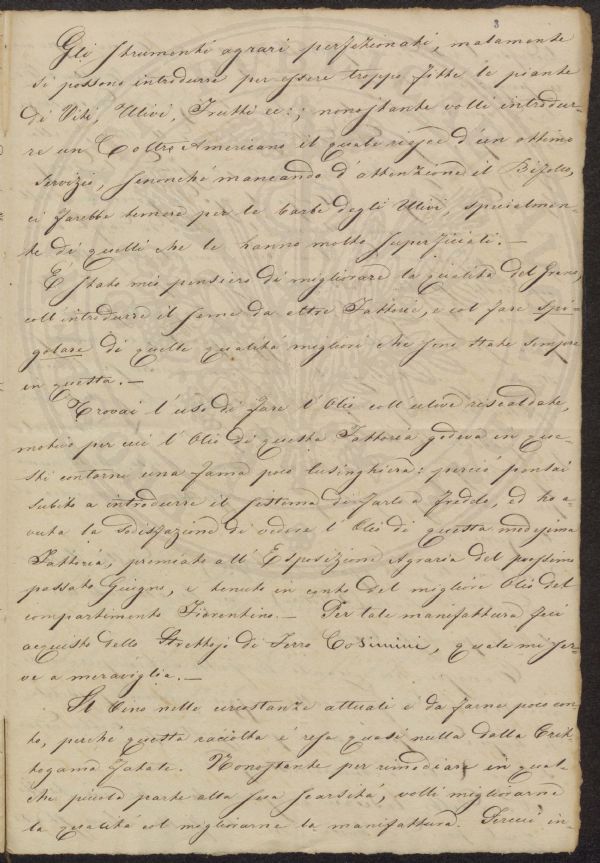 3
Gli strumenti agrari perfezionati, malamente
si possono introdurre per essere troppo fitte le piante
di Viti, Ulivi, Frutti ec:; nonostante volli introdur-
re un Coltre Americano il quale riesce d'un ottimo
servizio, senonché mancando d'attenzione il Bifolco,
ci sarebbe temere per le barbe degli Ulivi, specialmen-
te di quelli che le hanno molto superficiali. —
È stato mio pensiero di migliorare la qualità del Grano,
coll'introdurre il seme da altre Fattorie, e col fare spi-
golare di quelle qualità migliori che sono state sempre
in questa. —
Trovai l'uso di fare l'Olio coll'ulive riscaldate,
motivo per cui l'Olio di questa Fattoria godeva in que-
sti contorni una fama poco lusinghiera: perciò pensai
subito a introdurre il sistema di farlo a freddo, ed ho a-
vuta la sodisfazione di vedere l'Olio di questa medesima
Fattoria, premiato all'Esposizione Agraria del prossimo
passato Giugno, e tenuto in conto del migliore Olio del
compartimento Fiorentino. — Per tale manifattura feci
acquisto dello Strettojo di Ferro Cosimini, quale mi ser-
ve a meraviglia. —
Il Vino nelle circostanze attuali è da farne poco con-
to, perchè questa raccolta è resa quasi nulla dalla Crit-
togama fatale. Nonostante per rimediare in qual-
che piccola parte alla sua scarsità, volli migliorarne
la qualità col migliorarne la manifattura. Perciò in-